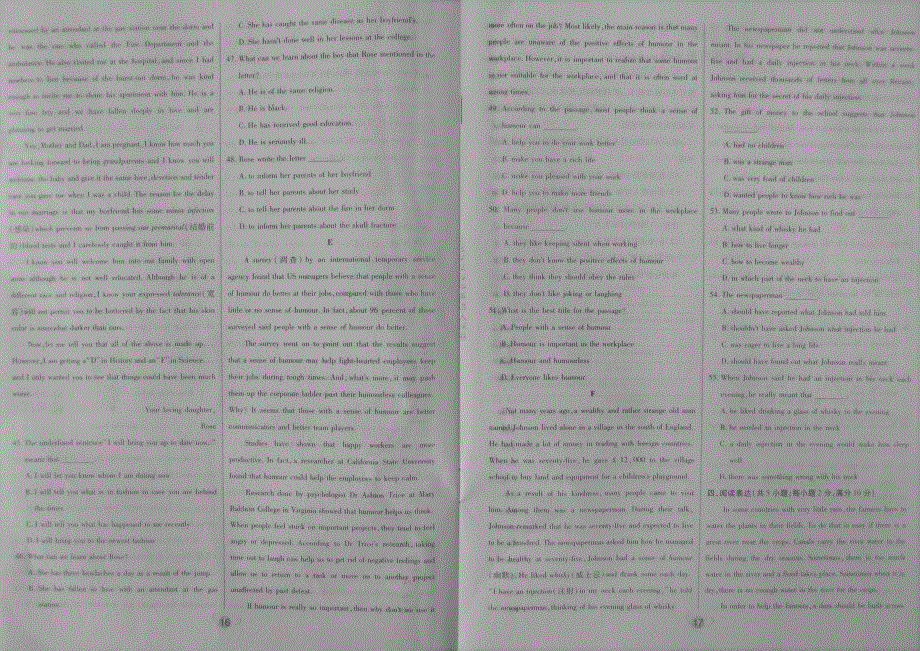 witnessed by an attendant at the gas station near the dorm and
he was the one who called the Fire Department and the
ambulance. He also visited me at the hospital, and since I had
nowhere to live because of the burnt-out dorm, he was kind
enough to invite me to share his apartment with him. He is a
very fine boy and we have fallen deeply in love and are
planning to get married.
Yes, Mother and Dad, I am pregnant. I know how much you
are looking forward to being grandparents and I know you will
welcome the baby and give it the same love, devotion and tender
care you gave me when I was a child. The reason for the delay
in our marriage is that my boyfriend has some minor infection
(感染) which prevents us from passing our premarital (结婚前
的) blood tests and I carelessly caught it from him.
I know you will welcome him into our family with open
arms although he is not well educated. Although he is of a
different race and religion, I know your expressed tolerance (宽
容) will not permit you to be bothered by the fact that his skin
color is somewhat darker than ours.
Now, let me tell you that all of the above is made up.
However, I am getting a "D" in History and an "F" in Science
and I only wanted you to see that things could have been much
worse.
Your loving daughter,
Rose
45. The underlined sentence "I will bring you up to date now."
means that ________.
A. I will let you know whom I am dating now
B. I will tell you what is in fashion in case you are behind
the times
C. I will tell you what has happened to me recently
D. I will bring you to the newest fashion
46. What can we learn about Rose?
A. She has three headaches a day as a result of the jump.
B. She has fallen in love with an attendant at the gas
station.
C. She has caught the same disease as her boyfriend's.
D. She hasn't done well in her lessons at the college.
47. What can we learn about the boy that Rose mentioned in the
letter?
A. He is of the same religion.
B. He is black.
C. He has received good education.
D. He is seriously ill.
48. Rose wrote the letter ________.
A. to inform her parents of her boyfriend
B. to tell her parents about her study
C. to tell her parents about the fire in her dorm
D. to inform her parents about the skull fracture
E
A survey (调查) by an international temporary service
agency found that US managers believe that people with a sense
of humour do better at their jobs, compared with those who have
little or no sense of humour. In fact, about 96 percent of those
surveyed said people with a sense of humour do better.
The survey went on to point out that the results suggest
that a sense of humour may help light-hearted employees keep
their jobs during tough times. And, what's more, it may push
them up the corporate ladder past their humourless colleagues.
Why? It seems that those with a sense of humour are better
communicators and better team players.
Studies have shown that happy workers are more
productive. In fact, a researcher at California State University
found that humour could help the employees to keep calm.
Research done by psychologist Dr Ashton Trice at Mary
Baldwin College in Virginia showed that humour helps us think.
When people feel stuck on important projects, they tend to feel
angry or depressed. According to Dr Trice's research, taking
time out to laugh can help us to get rid of negative feelings and
allow us to return to a task or move on to another project
unaffected by past defeat.
If humour is really so important, then why don't we use it
16
more often on the job? Most likely, the main reason is that many
people are unaware of the positive effects of humour in the
workplace. However, it is important to realize that some humour
is not suitable for the workplace, and that it is often used at
wrong times.
49. According to the passage, most people think a sense of
humour can ________.
A. help you to do your work better
B. make you have a rich life
C. make you pleased with your work
D. help you to make more friends
50. Many people don't use humour more in the workplace
because ________.
A. they like keeping silent when working
B. they don't know the positive effects of humour
C. they think they should obey the rules
D. they don't like joking or laughing
51. What is the best title for the passage?
A. People with a sense of humour
B. Humour is important in the workplace
C. Humour and humourless
D. Everyone likes humour
F
Not many years ago, a wealthy and rather strange old man
named Johnson lived alone in a village in the south of England.
He had made a lot of money in trading with foreign countries.
When he was seventy-five, he gave £ 12,000 to the village
school to buy land and equipment for a children's playground.
As a result of his kindness, many people came to visit
him. Among them was a newspaperman. During their talk,
Johnson remarked that he was seventy-five and expected to live
to be a hundred. The newspaperman asked him how he managed
to be healthy at seventy-five. Johnson had a sense of humour
(幽默). He liked whisky (威士忌) and drank some each day.
"I have an injection (注射) in my neck each evening," he told
the newspaperman, thinking of his evening glass of whisky.
The newspaperman did not understand what Johnson
meant. In his newspaper he reported that Johnson was seventy-
five and had a daily injection in his neck. Within a week
Johnson received thousands of letters from all over Britain,
asking him for the secret of his daily injection.
52. The gift of money to the school suggests that Johnson
________
A. had no children
B. was a strange man
C. was very fond of children
D. wanted people to know how rich he was
53. Many people wrote to Johnson to find out ________
A. what kind of whisky he had
B. how to live longer
C. how to become wealthy
D. in which part of the neck to have an injection
54. The newspaperman ________
A. should have reported what Johnson had told him
B. shouldn't have asked Johnson what injection he had
C. was eager to live a long life
D. should have found out what Johnson really meant
55. When Johnson said he had an injection in his neck each
evening, he really meant that ________
A. he liked drinking a glass of whisky in the evening
B. he needed an injection in the neck
C. a daily injection in the evening would make him sleep
well
D. there was something wrong with his neck
四、阅读表达(共5小题;每小题2分,满分10分)
In some countries with very little rain, the farmers have to
water the plants in their fields. To do that is easy if there is a
great river near the crops. Canals carry the river water to the
fields during the dry seasons. Sometimes, there is too much
water in the river and a flood takes place. Sometimes when it is
dry, there is no enough water in the river for the crops.
In order to help the farmers, a dam should be built across
17